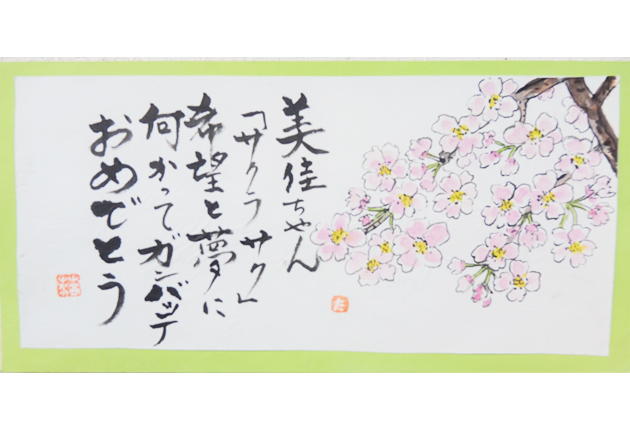 美佳ちゃん
「サクラサク」
希望と夢に
何かってガンバッテ
おめでとう
た